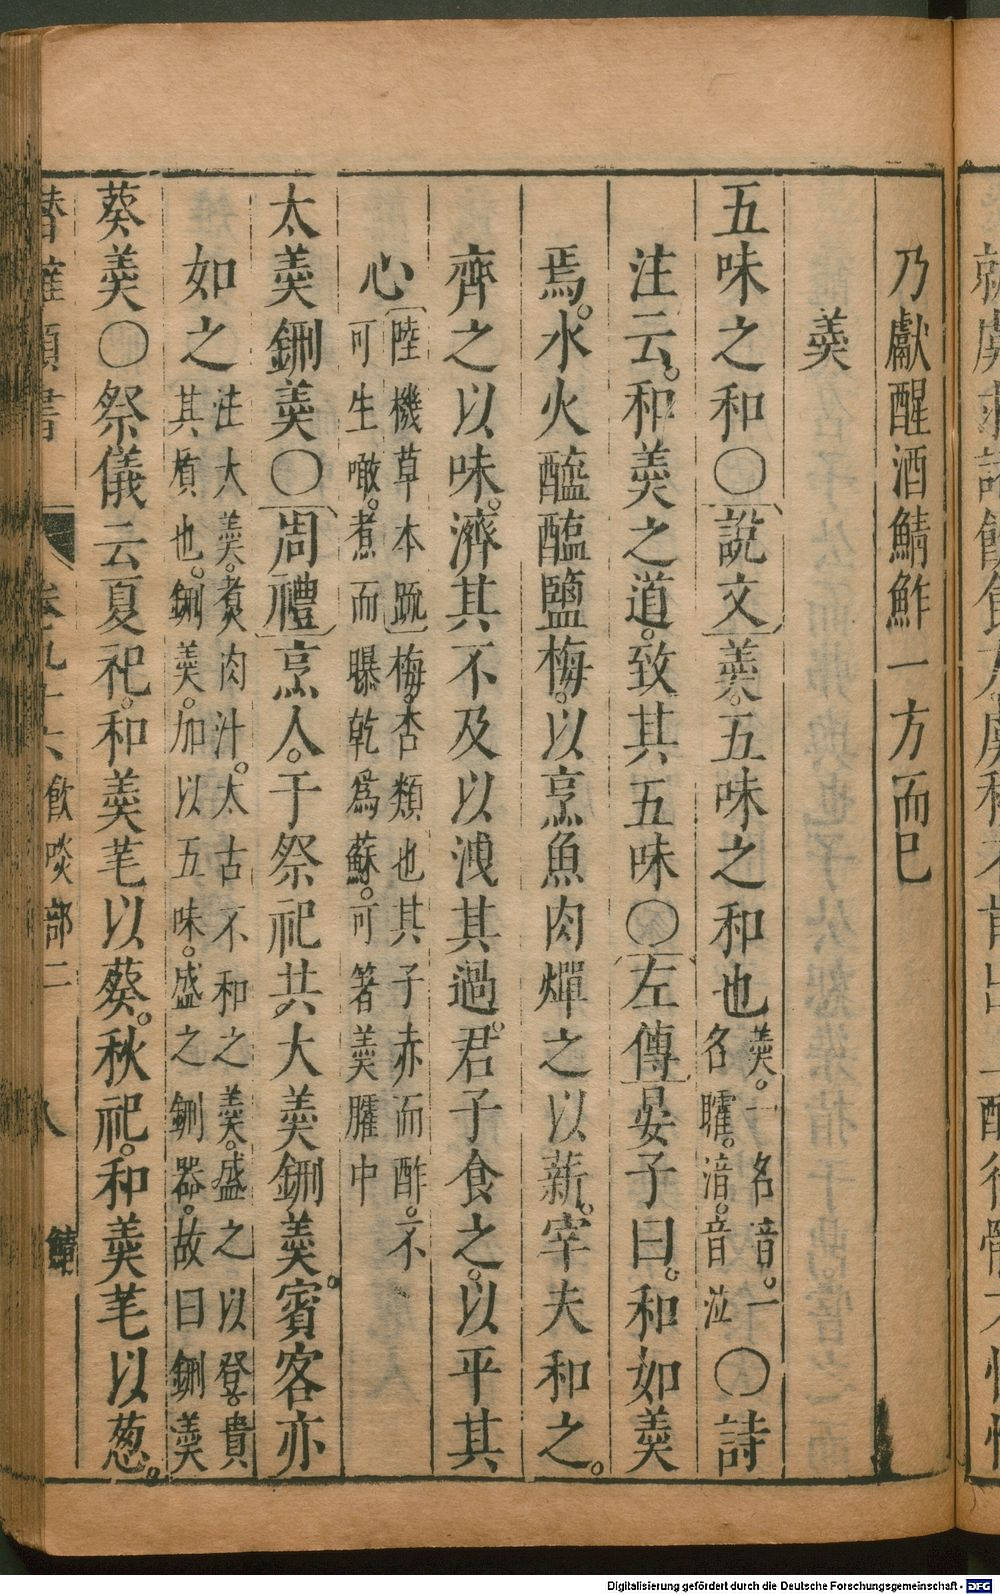 乃獻醒酒鯖鮓一方而已
羮
五味之和〇說文羮五味之和也羮一名音一名臛湆音泣〇詩
注云和羮之道致其五味〇左傳晏子曰和如羮
焉水火醯醢鹽梅以烹魚肉燀之以薪宰夫和之
齊之以味濟其不及以洩其過君子食之以平其
心陸機草木䟽梅杏類也其子赤而酢不可生噉煮而曝乾爲蘇可箸羮臛中
太羮鉶羮〇周禮烹人于祭祀共大羮鉶羮賓客亦
如之注大羮煮肉汁太古不和之羮盛之以登貴其質也鉶羮加以五味盛之鉶器故曰鉶羮
葵羮〇祭儀云夏祀和羮芼以葵秋祀和羮芼以葱
卷九十六 飲啖部二 八
Digitalisierung gefördert durch die Deutsche Forschungsgemeinschaft - DFG